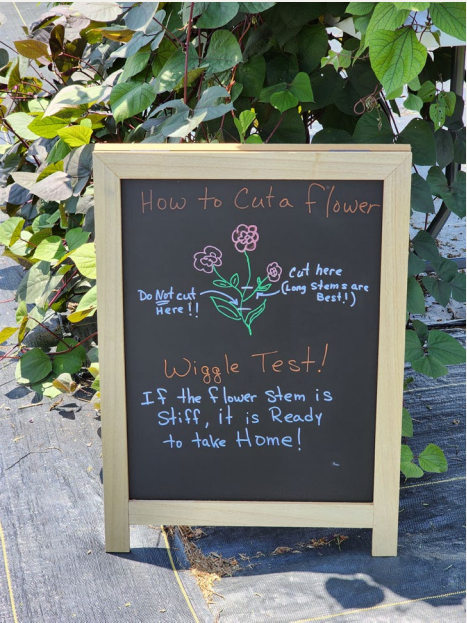 How to Cut a Flower
Do Not cut
Here!!
Cut here
(Long Stems are
Best!)
Wiggle Test!
If the flower stem is
Stiff, it is Ready
to take Home!